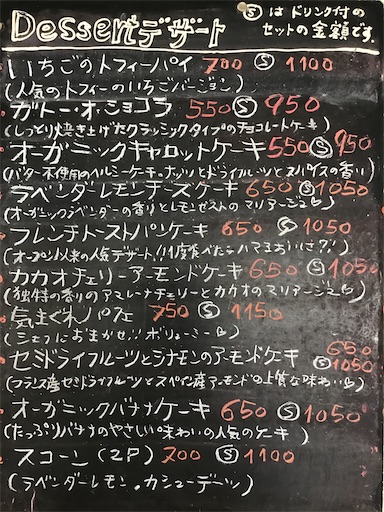 Dessertデザート
Ⓢはドリンク付の
セットの金額です。
いちごのトフィーパイ 700 Ⓢ 1100
(人気のトフィーのいちごバージョン)
ガトー・オ・ショコラ 550 Ⓢ 950
(しっとり焼き上げたクラッシックタイプのチョコレートケーキ)
オーガニックキャロットケーキ 550 Ⓢ 950
(バター不使用のヘルシーケーキ。ナッツとドライフルーツとスパイスの香い)
ラベンダーレモンチーズケーキ 650 Ⓢ 1050
(オーガニックラベンダーの香りとレモンゼストのマリアージュ)
フレンチトーストパンケーキ 650 Ⓢ 1050
(オープン以来の人気デザート!!1度食べたらハマるちいさ?!)
カカオチェリーアーモンドケーキ 650 Ⓢ 1050
(独特の香りのアマレーナチェリーとカカオのマリアージュ)
気まぐれパフェ 750 Ⓢ 1150
(シェフにおまかせ!!ボリューミー)
セミドライフルーツとシナモンのアーモンドケーキ 650 Ⓢ 1050
(フランス産セミドライフルーツとスペイン産アーモンドの上質な味わい)
オーガニックバナナケーキ 650 Ⓢ 1050
(たっぷりバナナのやさしい味わいの人気のケーキ)
スコーン(2P) 700 Ⓢ 1100
(ラベンダーレモン。カシューデーツ)